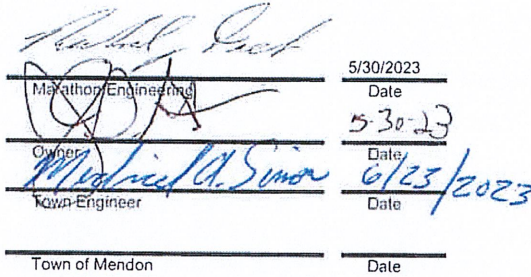 5/30/2023
Marathon Engineering Date
5-30-23
Owner Date
Michael A. Simon 6/23/2023
Town Engineer Date
Town of Mendon Date